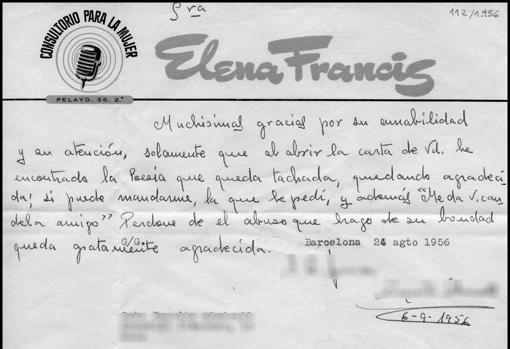 Sra
112/1956
CONSULTORIO PARA LA MUJER
Elena Francis
PELAYO, 56, 2.º
Muchísimas gracias por su amabilidad
y su atención, solamente que al abrir la carta de Vd. he
encontrado la Poesía que queda tachada, quedando agradeci-
da; si puede mandarme, la que le pedí, y además "Me da V. can-
dela amigo" Perdone de el abuso que hago de su bondad
queda gratamente agradecida.
G/G.
Barcelona 24 agto 1956
6-9-1956